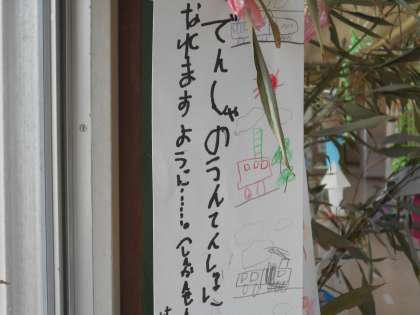 でんしゃのうんてんしに
なれますように……。(しんかんせん
は